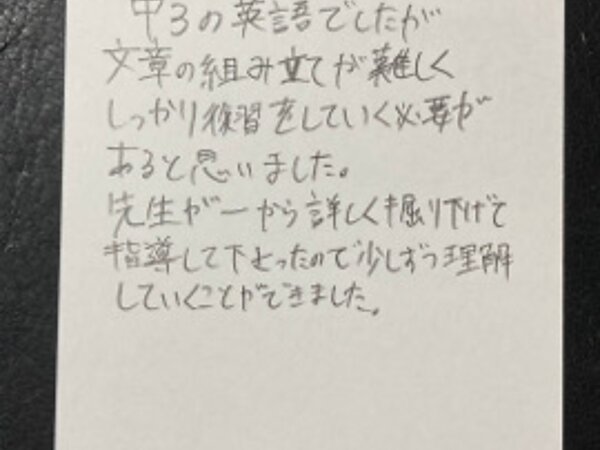 中3の英語でしたが
文章の組み立てが難しく
しっかり復習をしていく必要が
あると思いました。
先生が一から詳しく掘り下げて
指導して下さったので少しずつ理解
していくことができました。